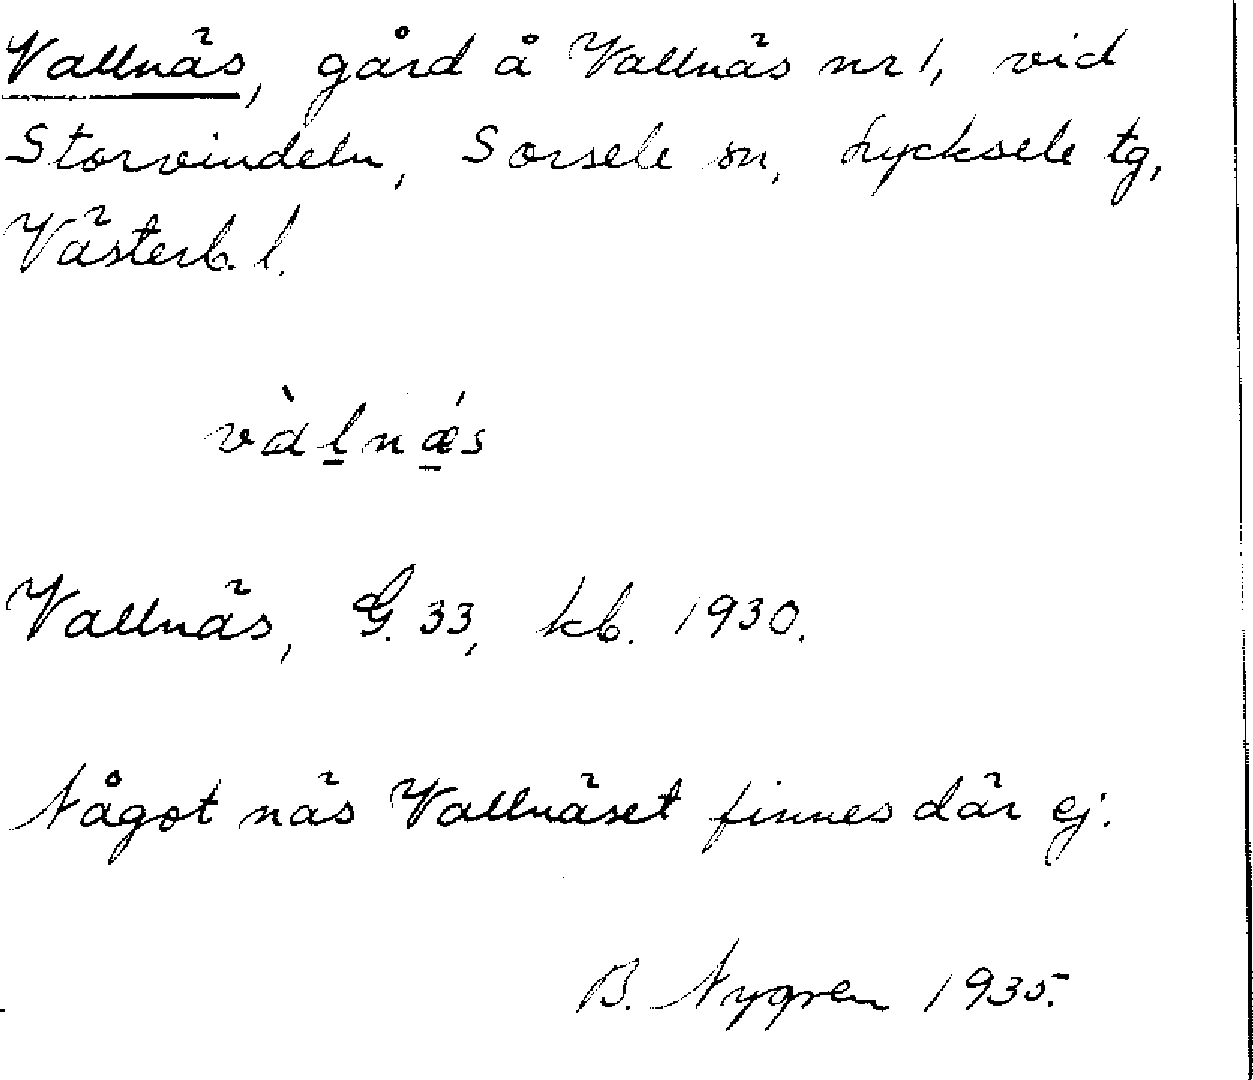 Vallnäs, gård å Vallnäs nr 1, vid
Storvindeln, Sorsele sn, Lycksele tg,
Västerb. l.
vàl̲nǽ̲s
Vallnäs, G. 33, kb. 1930.
Något näs Vallnäset finnes där ej.
B. Nygren 1935.